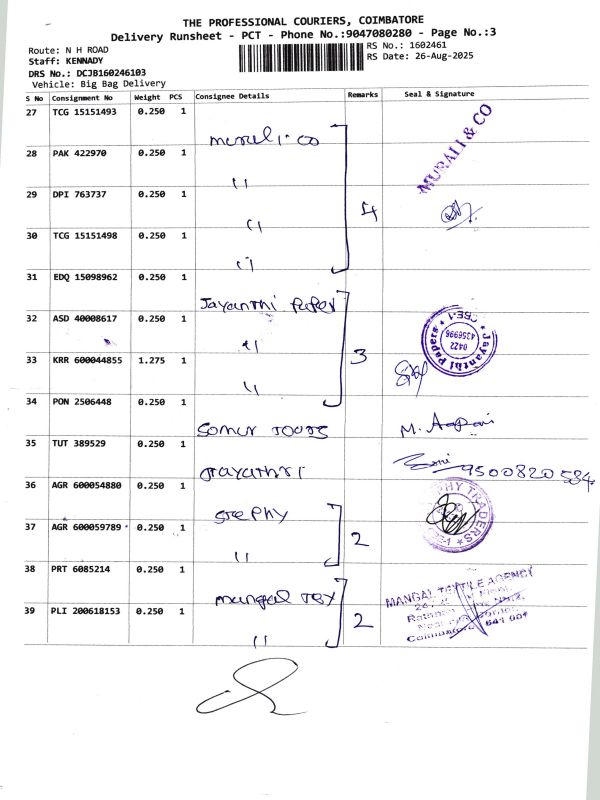 THE PROFESSIONAL COURIERS, COIMBATORE
Delivery Runsheet - PCT - Phone No.:9047080280 - Page No.:3
Route: N H ROAD
RS No.: 1602461
Staff: KENNADY
RS Date: 26-Aug-2025
DRS No.: DCJB160246103
Vehicle: Big Bag Delivery
S No Consignment No Weight PCS Consignee Details Remarks Seal & Signature
27 TCG 15151493 0.250 1 MURALI & CO
murali · co
28 PAK 422970 0.250 1
"
29 DPI 763737 0.250 1
" 4
30 TCG 15151498 0.250 1
"
31 EDQ 15098962 0.250 1
Jayanthi Paper
32 ASD 40008617 0.250 1
" Jayanthi Papers * CBE-1 * 0422 4356996
33 KRR 600044855 1.275 1 3
"
34 PON 2506448 0.250 1
35 TUT 389529 0.250 1
9500820584
Gayathri
36 AGR 600054880 0.250 1
Stephy PHY TRADERS
37 AGR 600059789 0.250 1 2
"
38 PRT 6085214 0.250 1
mangal Tex MANGAL TEXTILE AGENCY
39 PLI 200618153 0.250 1 2
" Coimbatore 641 001